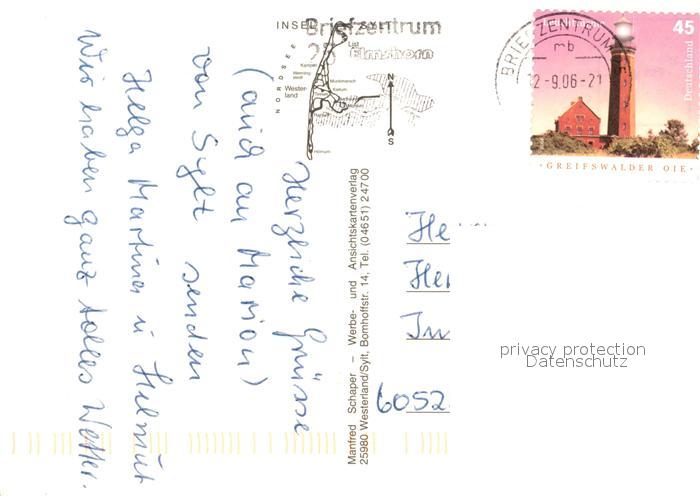 INSEL SYLT
Briefzentrum
25 Elmshorn
NORDSEE
List
Kampen
Wester-
land
Munkmarsch
Keitum
Hörnum
N
S
BRIEFZENTRUM
mb
-9.06-21
45
Deutschland
GREIFSWALDER OIE
Herzliche Grüsse
(auch an Marion)
von Sylt senden
Helga Martina u Helmut
Wir haben ganz tolles Wetter.
Manfred Schaper – Werbe- und Ansichtskartenverlag
25980 Westerland/Sylt, Bomhoffstr. 14, Tel. (04651) 24700
He
Her
6052
privacy protection
Datenschutz